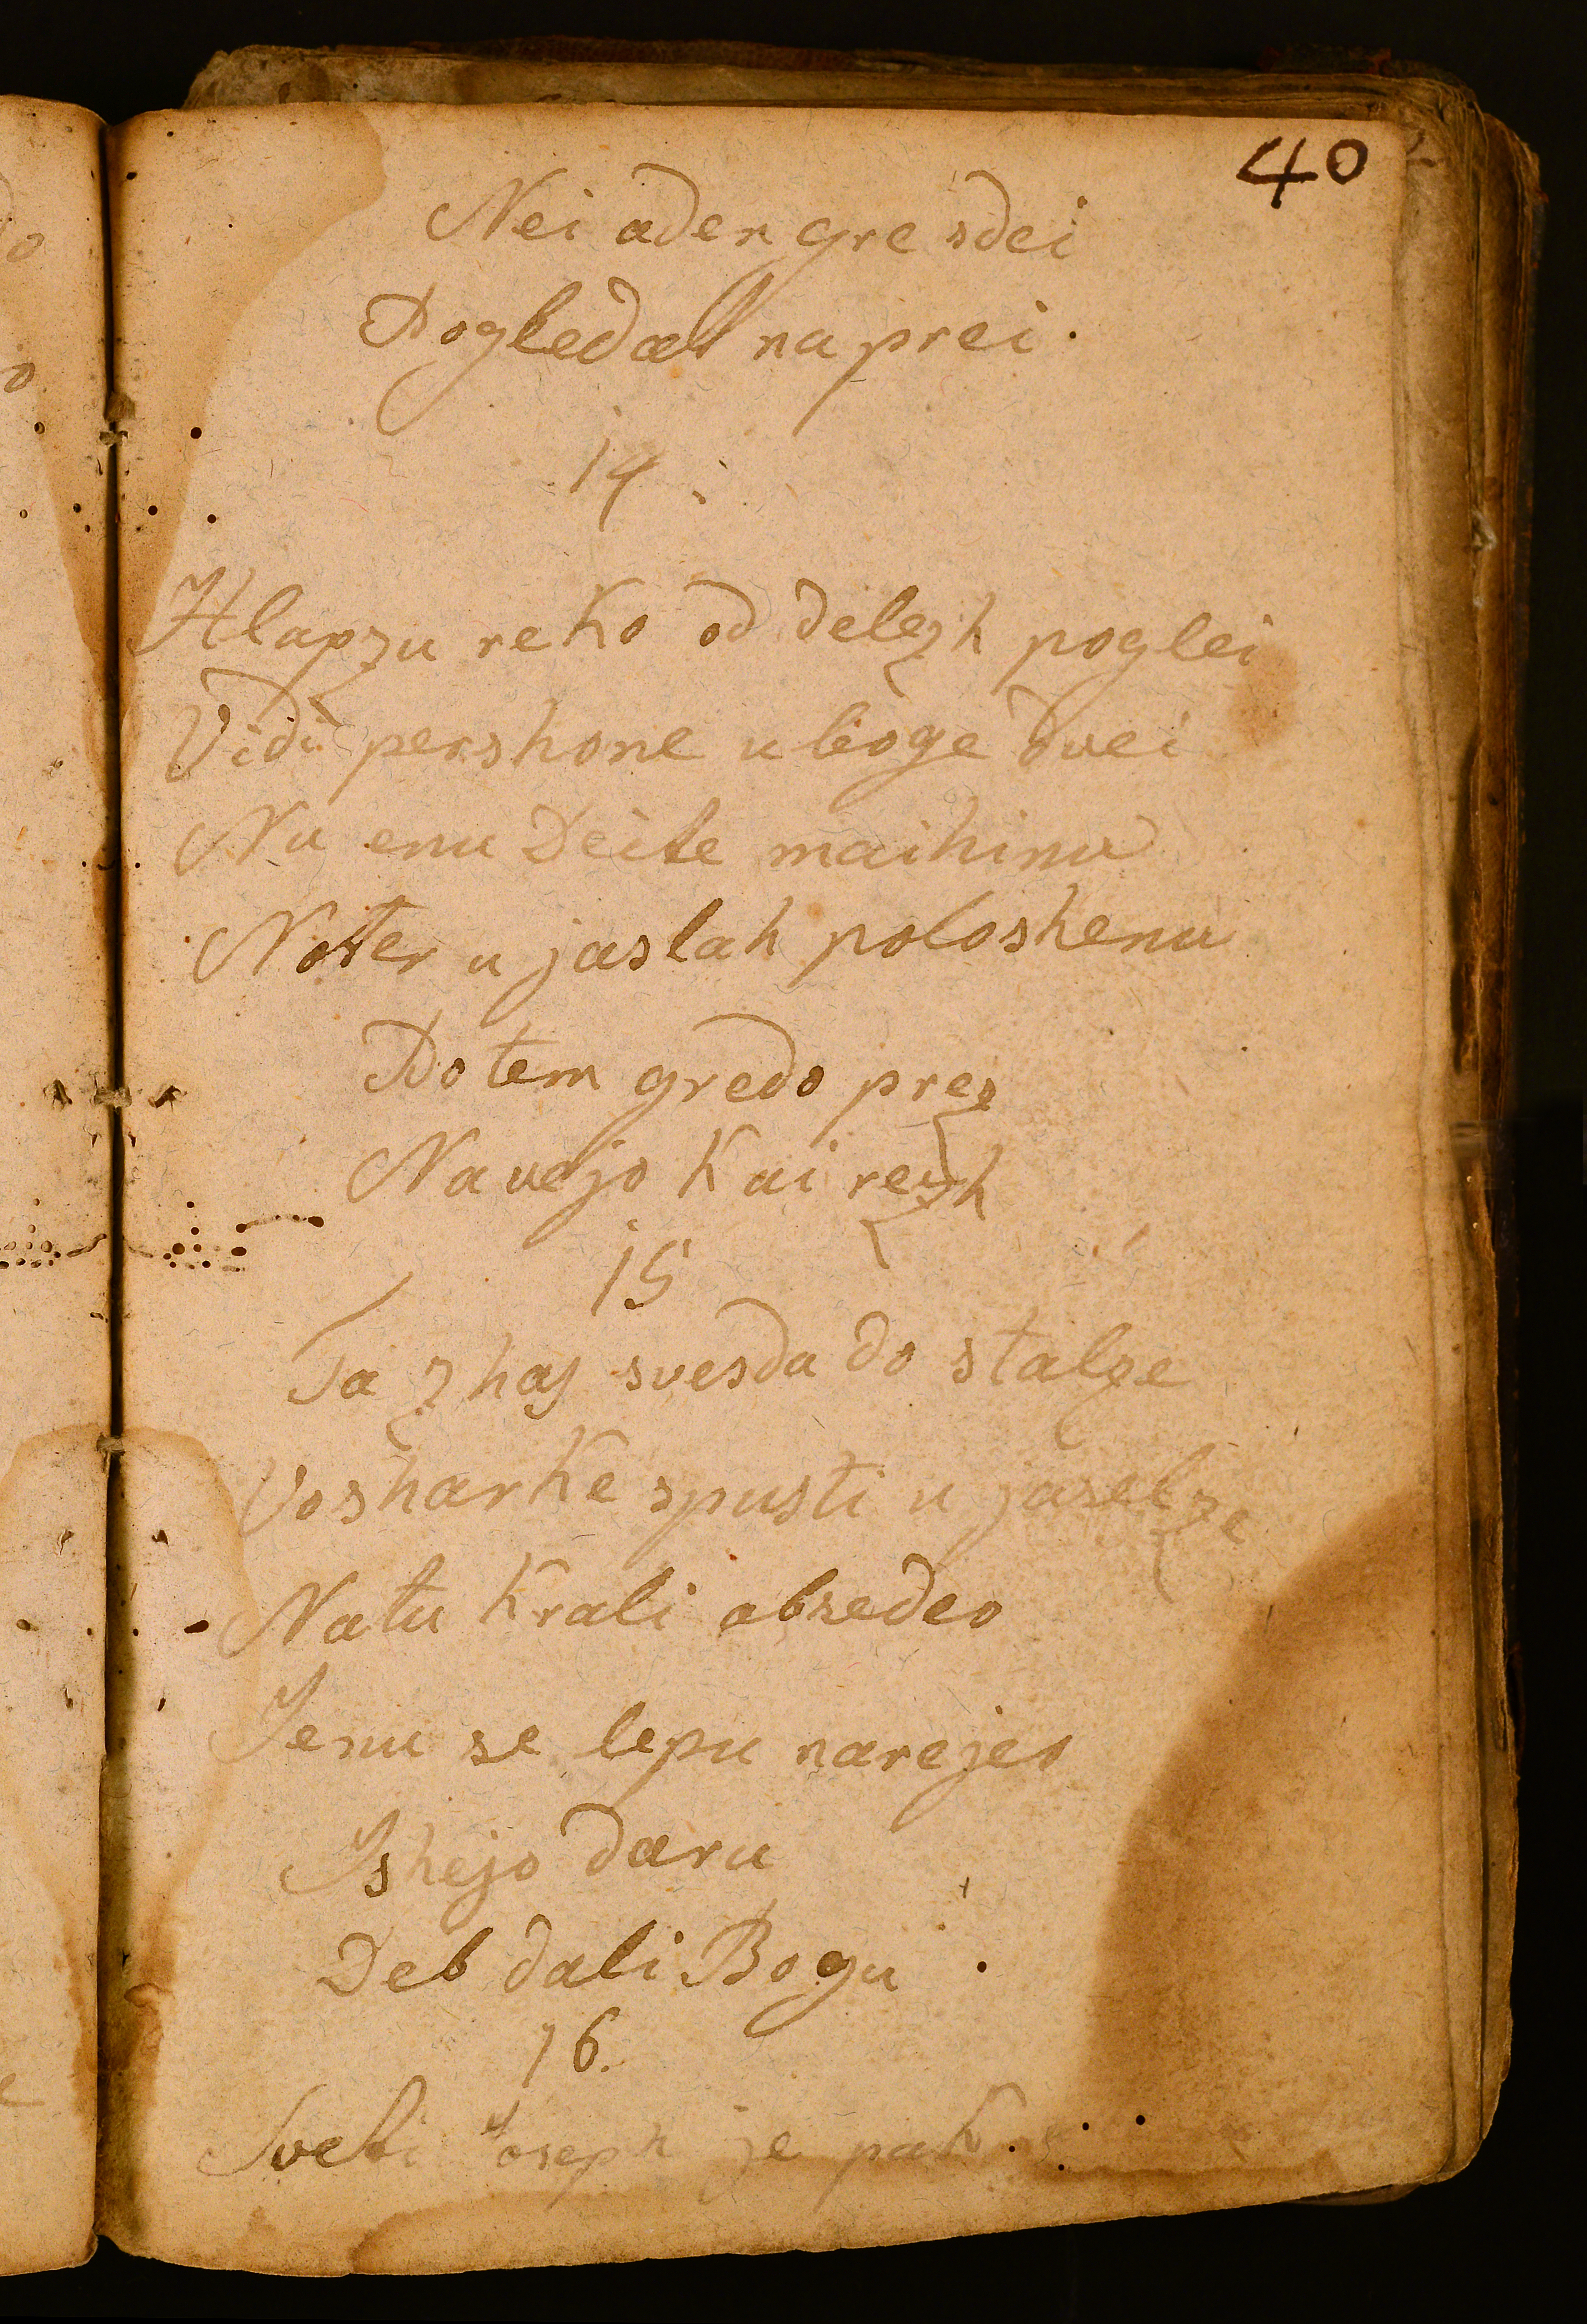 40
Nei aden gre sdei
Pogledat na prei.
14.
Hlapzu reko od delezh poglei
Vidi pershone uboge dvei
Nu enu Deite maihinu
Noter u jaslah poloshenu
Potem gredo prez
Navejo kai rezh
15
Ta zhas svesda do stalze
Vosharke spusti u jaselze
Natu krali obsedeo
Jenu se lepu narejeo
Ishejo daru
Deb dali Bogu.
16.
Sveti Joseph je pak